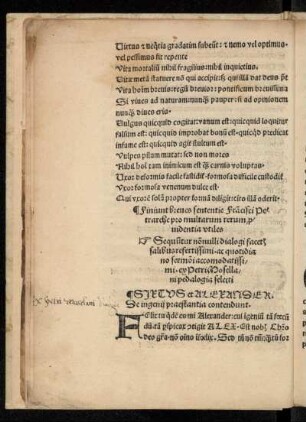 Virtus & neq̃tia gradatim subeũt: & nemo vel optimus
vel pessimus fit repente
Vita mortaliũ nihil fragilius: nihil inquietius
Vitæ metã statuere nõ qui accipit: sꝫ qui illã dat deus põt
Vita hoĩm breuis: regũ breuior: pontificum breuissima
Si viues ad naturam: nunꝗ̃ pauper: si ad opinionem
nunꝗ̃ diues eris
Vulgus quicquid cogitat: vanum est: quicquid loquitur
falsum est: quicquid improbat bonũ est: quicqd predicat
infame est: quicquid agit stultum est:
Vulpes pilum mutat: sed non mores
Nihil hoĩ tam inimicum est ꝗ̃ carnis voluptas
Vxor deformis facile fastidit: formosa difficile custodit
Vxor formosa venenum dulce est
Qui vxorẽ solũ propter formã diligit: cito illã oderit
¶ Finiunt breues sententie Frãcisci Pe
trarchæ pro multarum rerum p̱
uidentia vtiles
¶ Sequũtur nõnulli dialogi facetĩ
salibus refertissimi: ac quotidia
no sermoni accomodatissi
mi. ex Petri Mosella
ni pedalogia selecti
¶ SIXTVS et ALEXANDER.
De ingenij præstantia contendunt.
FElix tu quidẽ es mi Alexander: cui
ALEX. Est nobĩ